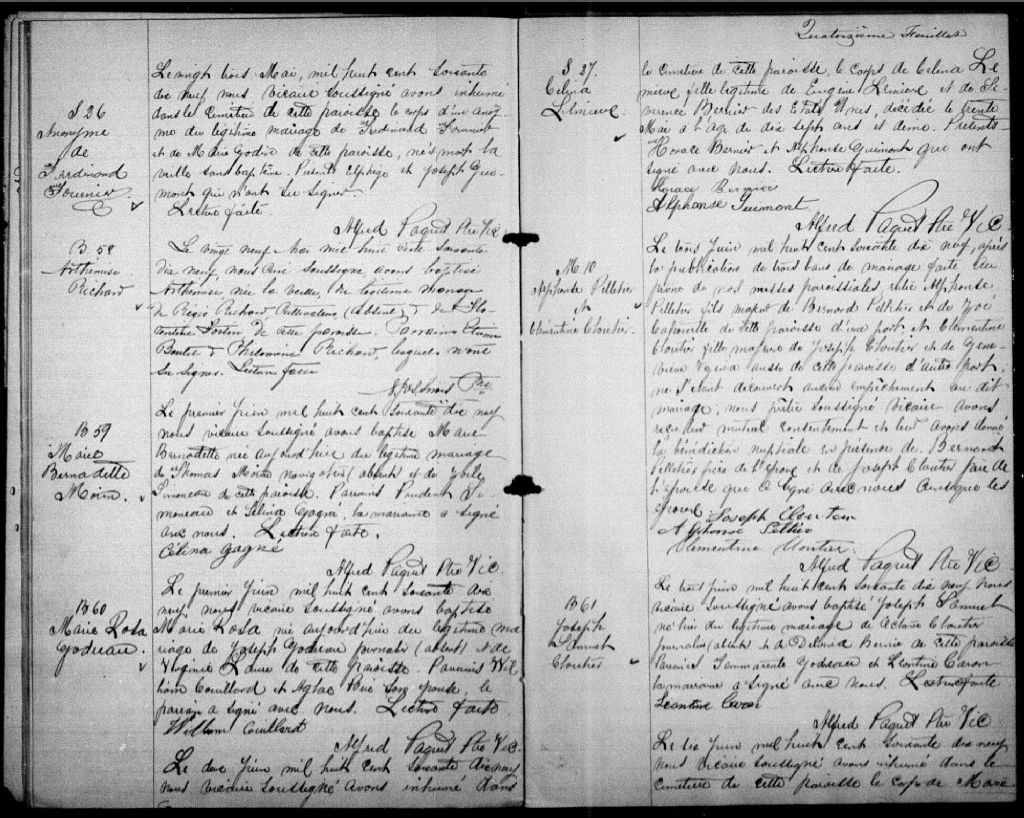 S 26
Anonyme
de
Ferdinand
Fournier
Le vingt trois Mai, mil huit cent soixante
dix neuf nous vicaire soussigné avons inhumé
dans le cimetière de cette paroisse le corps d'un anony
me du légitime mariage de Ferdinand Fournier
et de Marie Godin de cette paroisse, né & mort la
veille sans baptême. Présents Elphège et Joseph Gui-
mont qui n'ont su signer.
Lecture faite.
Alfred Paquet Ptre Vic
B 58
Arthémise
Richard
Le vingt neuf Mai mil huit cent soixante
dix neuf, nous soussigné, avons baptisé
Arthémise, née la veille, du légitime mariage
de Régis Richard Cultivateur (absent) & de
de cette paroisse. Parrain
& Philomène Richard, lesquels n'ont
su signer. Lecture faite
Ptre
B 59
Marie
Bernadette
Morin.
Le premier Juin mil huit cent soixante dix neuf
nous vicaire soussigné avons baptisé Marie
Bernadette née aujourd'hui du légitime mariage
de Thomas Morin navigateur (absent) et de
Simoneau de cette paroisse. Parrains Prudent Si-
moneau et Célina Gagné, la marraine a signé
avec nous. Lecture faite.
Célina Gagné
Alfred Paquet Ptre Vic.
B 60
Marie Rosa
Godreau.
Le premier Juin mil huit cent soixante dix
neuf nous vicaire soussigné avons baptisé
Marie Rosa née aujourd'hui du légitime ma
riage de Joseph Godreau journalier (absent) et de
Virginie de cette paroisse. Parrains Wil
liam Couillard et son épouse, le
parrain a signé avec nous. Lecture faite
William Couillard
Alfred Paquet Ptre Vic.
Le deux Juin mil huit cent soixante dix neuf
nous vicaire soussigné avons inhumé dans
Quatorzième Feuillet
S 27.
Célina
Lemieux.
le cimetière de cette paroisse, le corps de Célina Le
mieux fille légitime de Eugène Lemieux et de Sé-
verence Bernier des Etats Unis, décédée le trente
Mai à l'âge de dix sept ans et demi. Présents
Horace Bernier et Alphonse Guimont qui ont
signé avec nous. Lecture faite.
Horace Bernier
Alphonse Guimont
Alfred Paquet Ptre Vic.
M 10
Alphonse Pelletier
&
Clémentine Cloutier.
Le trois Juin mil huit cent soixante dix neuf, après
la publication de trois bans de mariage faite au
prône de nos messes paroissiales, entre Alphonse
Pelletier fils majeur de Bernard Pelletier et de Zoé
de cette paroisse d'une part, et Clémentine
Cloutier fille majeure de Joseph Cloutier et de Gene-
viève aussi de cette paroisse d'autre part;
ne s'étant découvert aucun empêchement au dit
mariage; nous prêtre soussigné vicaire avons
reçu leur mutuel consentement et leur avons donné
la bénédiction nuptiale en présence de Bernard
Pelletier père de l'époux et de Joseph Cloutier père de
l'épouse qui a signé avec nous ainsi que les
époux.
Joseph Cloutier
Alphonse Peltier
Clementine Cloutier.
Alfred Paquet Ptre Vic
B 61
Joseph
Samuel
Cloutier
Le trois Juin mil huit cent soixante dix neuf nous
vicaire soussigné avons baptisé Joseph Samuel
né hier du légitime mariage de Octave Cloutier
journalier (absent) et de Bernier de cette paroisse
Parrains Godreau et Léontine Caron
la marraine a signé avec nous. Lecture faite
Léontine Caron
Alfred Paquet Ptre Vic
Le six Juin mil huit cent soixante dix neuf
nous vicaire soussigné avons inhumé dans le
cimetière de cette paroisse le corps de Marie